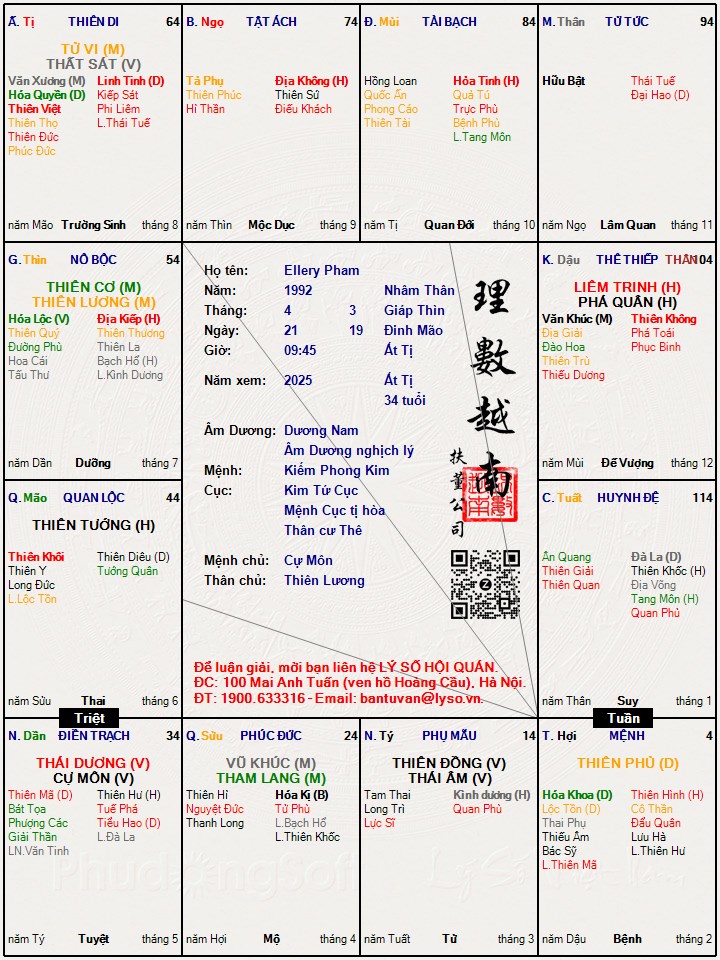 Ấ. Tị THIÊN DI 64
TỬ VI (M)
THẤT SÁT (V)
Văn Xương (M) Linh Tinh (D)
Hóa Quyền (D) Kiếp Sát
Thiên Việt Phi Liêm
Thiên Thọ L.Thái Tuế
Thiên Đức
Phúc Đức
năm Mão Trường Sinh tháng 8
B. Ngọ TẬT ÁCH 74
Tả Phụ Địa Không (H)
Thiên Phúc Thiên Sứ
Hỉ Thần Điếu Khách
năm Thìn Mộc Dục tháng 9
Đ. Mùi TÀI BẠCH 84
Hồng Loan Hỏa Tinh (H)
Quốc Ấn Quả Tú
Phong Cáo Trực Phù
Thiên Tài Bệnh Phù
L.Tang Môn
năm Tị Quan Đới tháng 10
M. Thân TỬ TỨC 94
Hữu Bật Thái Tuế
Đại Hao (D)
năm Ngọ Lâm Quan tháng 11
G. Thìn NÔ BỘC 54
THIÊN CƠ (M)
THIÊN LƯƠNG (M)
Hóa Lộc (V) Địa Kiếp (H)
Thiên Quý Thiên Thương
Đường Phù Thiên La
Hoa Cái Bạch Hổ (H)
Tấu Thư L.Kình Dương
năm Dần Dưỡng tháng 7
Họ tên: Ellery Pham
Năm: 1992 Nhâm Thân
Tháng: 4 3 Giáp Thìn
Ngày: 21 19 Đinh Mão
Giờ: 09:45 Ất Tị
Năm xem: 2025 Ất Tị
34 tuổi
Âm Dương: Dương Nam
Âm Dương nghịch lý
Mệnh: Kiếm Phong Kim
Cục: Kim Tứ Cục
Mệnh Cục tị hòa
Thân cư Thê
Mệnh chủ: Cự Môn
Thân chủ: Thiên Lương
理數越南
扶董公司
Để luận giải, mời bạn liên hệ LÝ SỐ HỘI QUÁN.
ĐC: 100 Mai Anh Tuấn (ven hồ Hoàng Cầu), Hà Nội.
ĐT: 1900.633316 - Email: bantuvan@lyso.vn.
K. Dậu THÊ THIẾP THÂN 104
LIÊM TRINH (H)
PHÁ QUÂN (H)
Văn Khúc (M) Thiên Không
Địa Giải Phá Toái
Đào Hoa Phục Binh
Thiên Trù
Thiếu Dương
năm Mùi Đế Vượng tháng 12
Q. Mão QUAN LỘC 44
THIÊN TƯỚNG (H)
Thiên Khôi Thiên Diêu (D)
Thiên Y Tướng Quân
Long Đức
L.Lộc Tồn
năm Sửu Thai tháng 6
C. Tuất HUYNH ĐỆ 114
Ân Quang Đà La (D)
Thiên Giải Thiên Khốc (H)
Thiên Quan Địa Võng
Tang Môn (H)
Quan Phủ
năm Thân Suy tháng 1
Triệt
Tuần
N. Dần ĐIỀN TRẠCH 34
THÁI DƯƠNG (V)
CỰ MÔN (V)
Thiên Mã (D) Thiên Hư (H)
Bát Tọa Tuế Phá
Phượng Các Tiểu Hao (D)
Giải Thần L.Đà La
LN.Văn Tinh
năm Tý Tuyệt tháng 5
Q. Sửu PHÚC ĐỨC 24
VŨ KHÚC (M)
THAM LANG (M)
Thiên Hỉ Hóa Kị (B)
Nguyệt Đức Tử Phù
Thanh Long L.Bạch Hổ
L.Thiên Khốc
năm Hợi Mộ tháng 4
N. Tý PHỤ MẪU 14
THIÊN ĐỒNG (V)
THÁI ÂM (V)
Tam Thai Kình dương (H)
Long Trì Quan Phù
Lực Sĩ
năm Tuất Tử tháng 3
T. Hợi MỆNH 4
THIÊN PHỦ (D)
Hóa Khoa (D) Thiên Hình (H)
Lộc Tồn (D) Cô Thần
Thai Phụ Đẩu Quân
Thiếu Âm Lưu Hà
Bác Sỹ L.Thiên Hư
L.Thiên Mã
năm Dậu Bệnh tháng 2